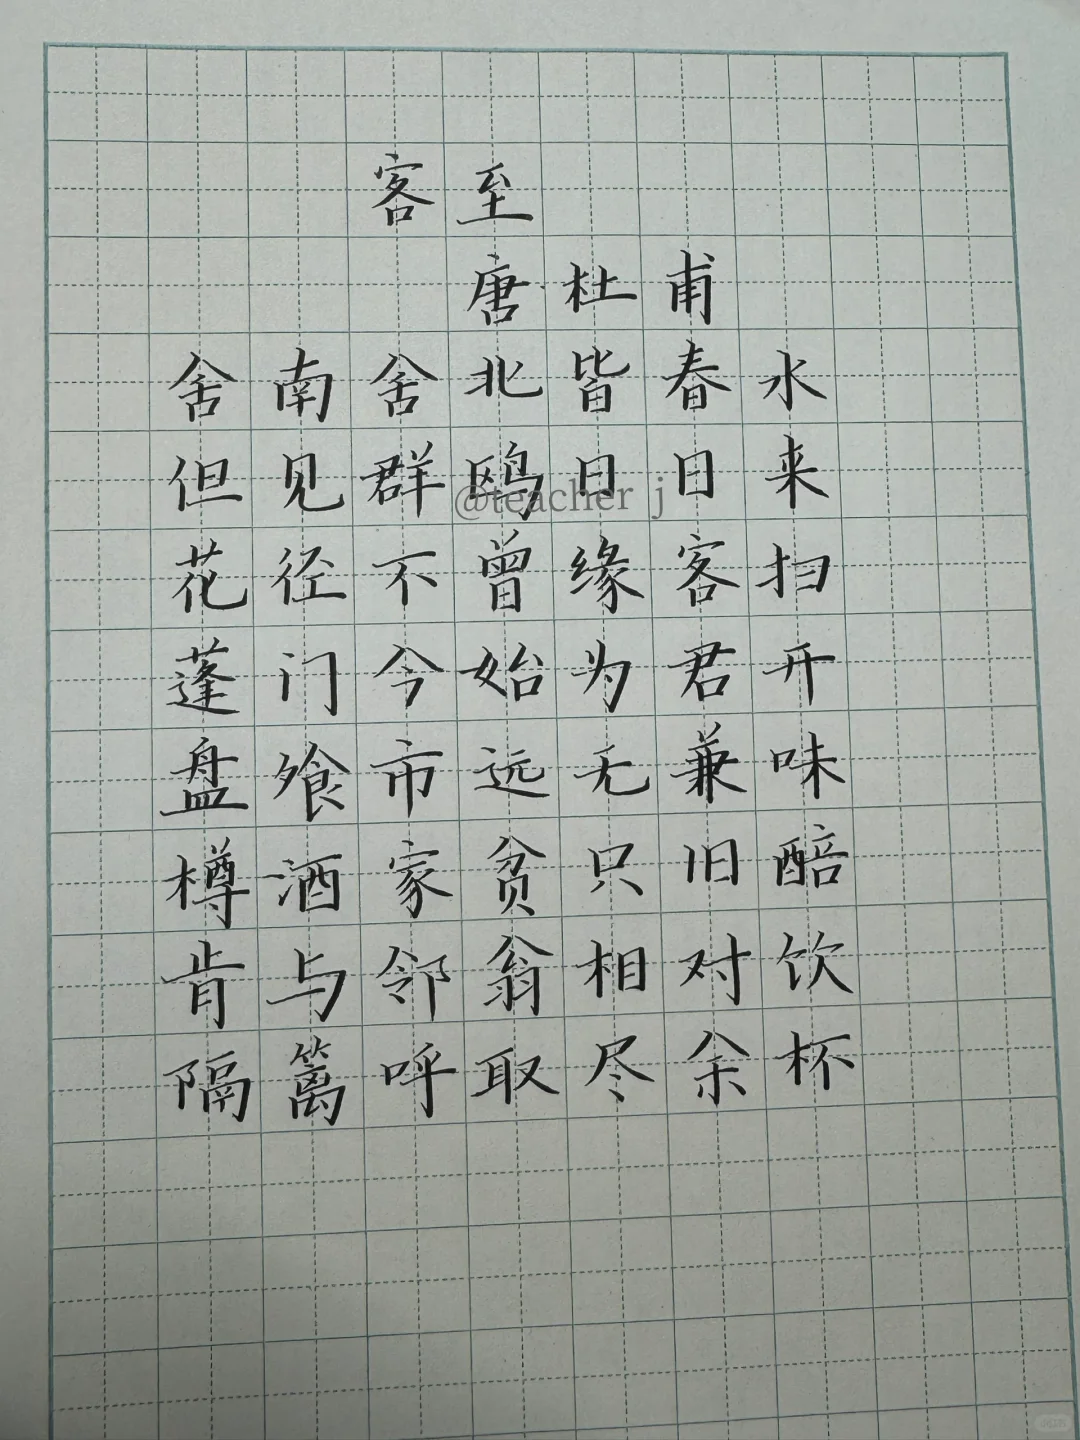 客至
唐·杜甫
舍南舍北皆春水
但见群鸥日日来
@teacher j
花径不曾缘客扫
蓬门今始为君开
盘飧市远无兼味
樽酒家贫只旧醅
肯与邻翁相对饮
隔篱呼取尽余杯